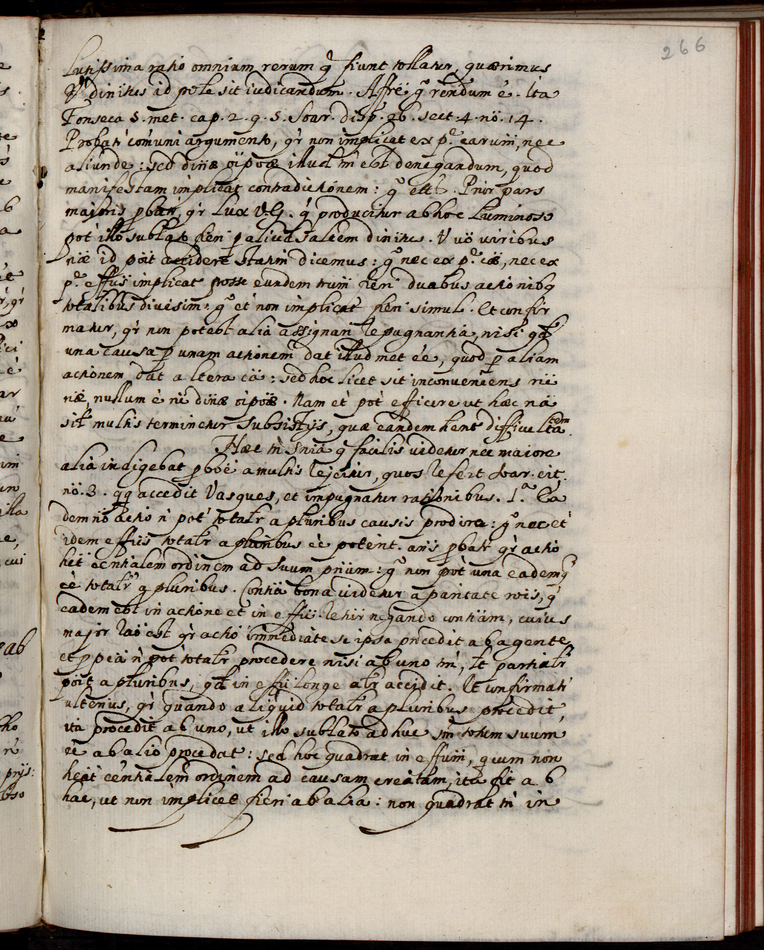 266
ratio omnium rerum q̃ fiunt tollatur, quærimus
diuinitus id possit sit iudicandum. Affir. rẽndum ẽ. Ita
Fonseca 5. met. cap. 2. q. 5. Soar. disp. 26. sect. 4. nõ. 14.
Probatr̃ cõmuni argumento, qr̃ non implicat ex p.e earum, nec
aliunde: sed diuinæ õipõæ illud tñ est denegandum, quod
manifestam implicat contradictionem: gº etc. Prior pars
maioris pbatr̃, qr̃ Lux V.G. q̃ producitur ab hoc Luminoso
põt illo sublato fieri p aliud saltem diuinitus. V uõ uiribus
næ id põt accidere statim dicemus: gº nec ex p.e cæ, nec ex
p.e effũs implicat posse eundem fieri duabus actionibq
totalibus diuisim: gº et non implicat fieri simul. Et confir
matur, qr̃ non potest alia assignari repugnantia, nisi qd̃
una causa p unam actionem dat illud met ẽe, quod p aliam
actionem dat altera cã: sed hoc licet sit inconueniens
næ, nullum ẽ diuinæ õipõæ. Nam et põt efficere ut hæc nã
sit multis terminetur subsistijs, quæ eandem hent difficultatem.
Hæc tñ snĩa q̃ facilis uidetur nec maiore
alia indigebat pbõe a multis rejicitur, quos refert Soar. cit.
nõ. 3. qq accedit Vasques, et impugnatur rationibus. 1.a Ea
dem nõ actio ñ põt totalr̃ a pluribus causis prodire: gº nec et
idem effũs totalr̃ a pluribus ẽe poterit. añs pbatr̃ qr̃ actio
het ẽentialem ordinem ad suum prium: gº non põt una eademq
ẽe totalr̃ a pluribus. Conña bona uidetur a paritate rõis, q̃
eadem est in actione et in effũ. negando conñam, cuius
major rão est qr̃ actio immediate se ipsa procedit ab agente,
et ppea ñ põt totalr̃ procedere nisi ab uno tñ, lt partialr̃
põit a pluribus, qd̃ in effũ longe alr̃ accidit. Et confirmatr̃
ulterius, qr̃ quando aliquid totalr̃ a pluribus procedit,
ita procedit ab uno, ut illo sublato adhuc totum suum
ẽe ab alio procedat: sed hoc quadrat in effum, qui cum non
heat ẽentialem ordinem ad causam creatam, ita fit ab
hac, ut non implicet fieri ab alia: non quadrat tñ in